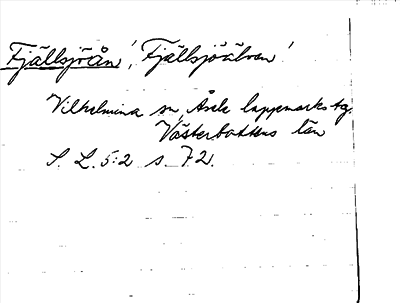 Fjällsjöån', Fjällsjöälven'
Vilhelmina sn, Åsele lappmarks tg.
Västerbottens län
S. L. 5:2 s. 72.